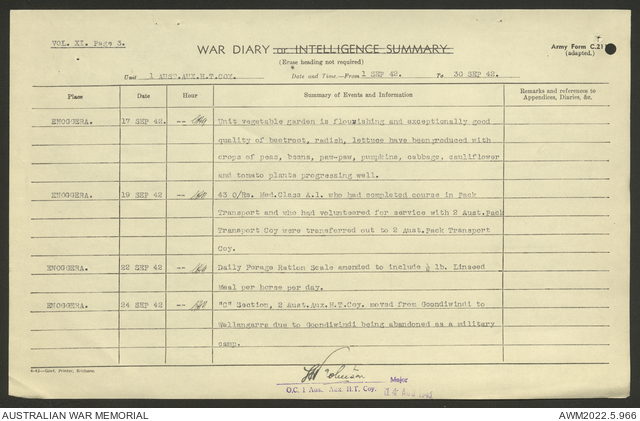 VOL. XI. Page 3.
WAR DIARY or INTELLIGENCE SUMMARY
Army Form C.21
(adapted.)
(Erase heading not required)
Unit 1 AUST.AUX.H.T.COY. Date and Time—From 1 SEP 42. To 30 SEP 42.
Place Date Hour Summary of Events and Information Remarks and references to
Appendices, Diaries, &c.
ENOGGERA. 17 SEP 42. -- Unit vegetable garden is flourishing and exceptionally good
quality of beetroot, radish, lettuce have been produced with
crops of peas, beans, paw-paw, pumpkins, cabbage, cauliflower
and tomato plants progressing well.
ENOGGERA. 19 SEP 42 -- 43 O/Rs. Med.Class A.1. who had completed course in Pack
Transport and who had volunteered for service with 2 Aust.Pack
Transport Coy were transferred out to 2 Aust.Pack Transport
Coy.
ENOGGERA. 22 SEP 42 -- Daily Forage Ration Scale amended to include ½ lb. Linseed
Meal per horse per day.
ENOGGERA. 24 SEP 42 -- "C" Section, 2 Aust.Aux.H.T.Coy. moved from Goondiwindi to
Wallangarra due to Goondiwindi being abandoned as a military
camp.
8-42—Govt. Printer, Brisbane.
Major
O.C. 1 Aus. Aux. H.T. Coy.
AUSTRALIAN WAR MEMORIAL
AWM2022.5.966